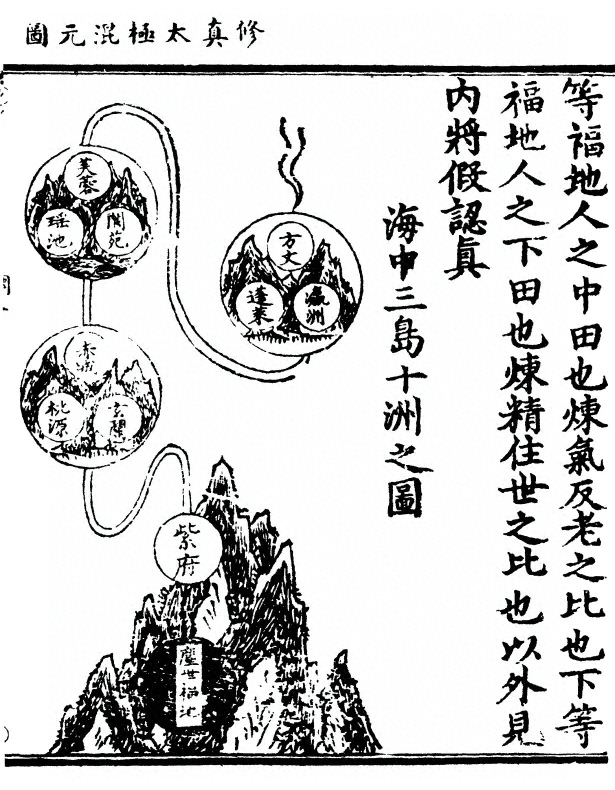 修真太極混元圖
等福地人之中田也煉氣反老之比也下等
福地人之下田也煉精住世之比也以外見
內將假認真
海中三島十洲之圖
方丈
瀛洲
蓬萊
芙蓉
閬苑
瑤池
赤城
玄關
桃源
紫府
塵世福地